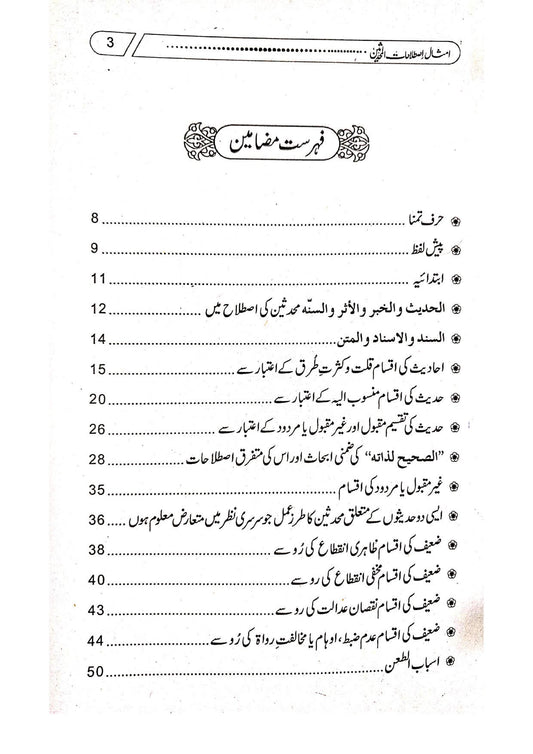 امثال اصطلاحات المحدثین 3
فہرست مضامین
حرف تمنا 8
پیش لفظ 9
ابتدائیہ 11
الحدیث والخبر والأثر والسنّه محدثین کی اصطلاح میں 12
السند والاسناد والمتن 14
احادیث کی اقسام قلت و کثرتِ طُرق کے اعتبار سے 15
حدیث کی اقسام منسوب الیہ کے اعتبار سے 20
حدیث کی تقسیم مقبول اور غیر مقبول یا مردود کے اعتبار سے 26
”الصحیح لذاته“ کی ضمنی ابحاث اور اس کی متفرق اصطلاحات 28
غیر مقبول یا مردود کی اقسام 35
ایسی دو حدیثوں کے متعلق محدثین کا طرزِ عمل جو سرسری نظر میں متعارض معلوم ہوں 36
ضعیف کی اقسام ظاہری انقطاع کی رُو سے 38
ضعیف کی اقسام مخفی انقطاع کی رو سے 40
ضعیف کی اقسام نقصان عدالت کی رو سے 43
ضعیف کی اقسام عدم ضبط، اوہام یا مخالفتِ رواۃ کی رُو سے 44
اسباب الطعن 50